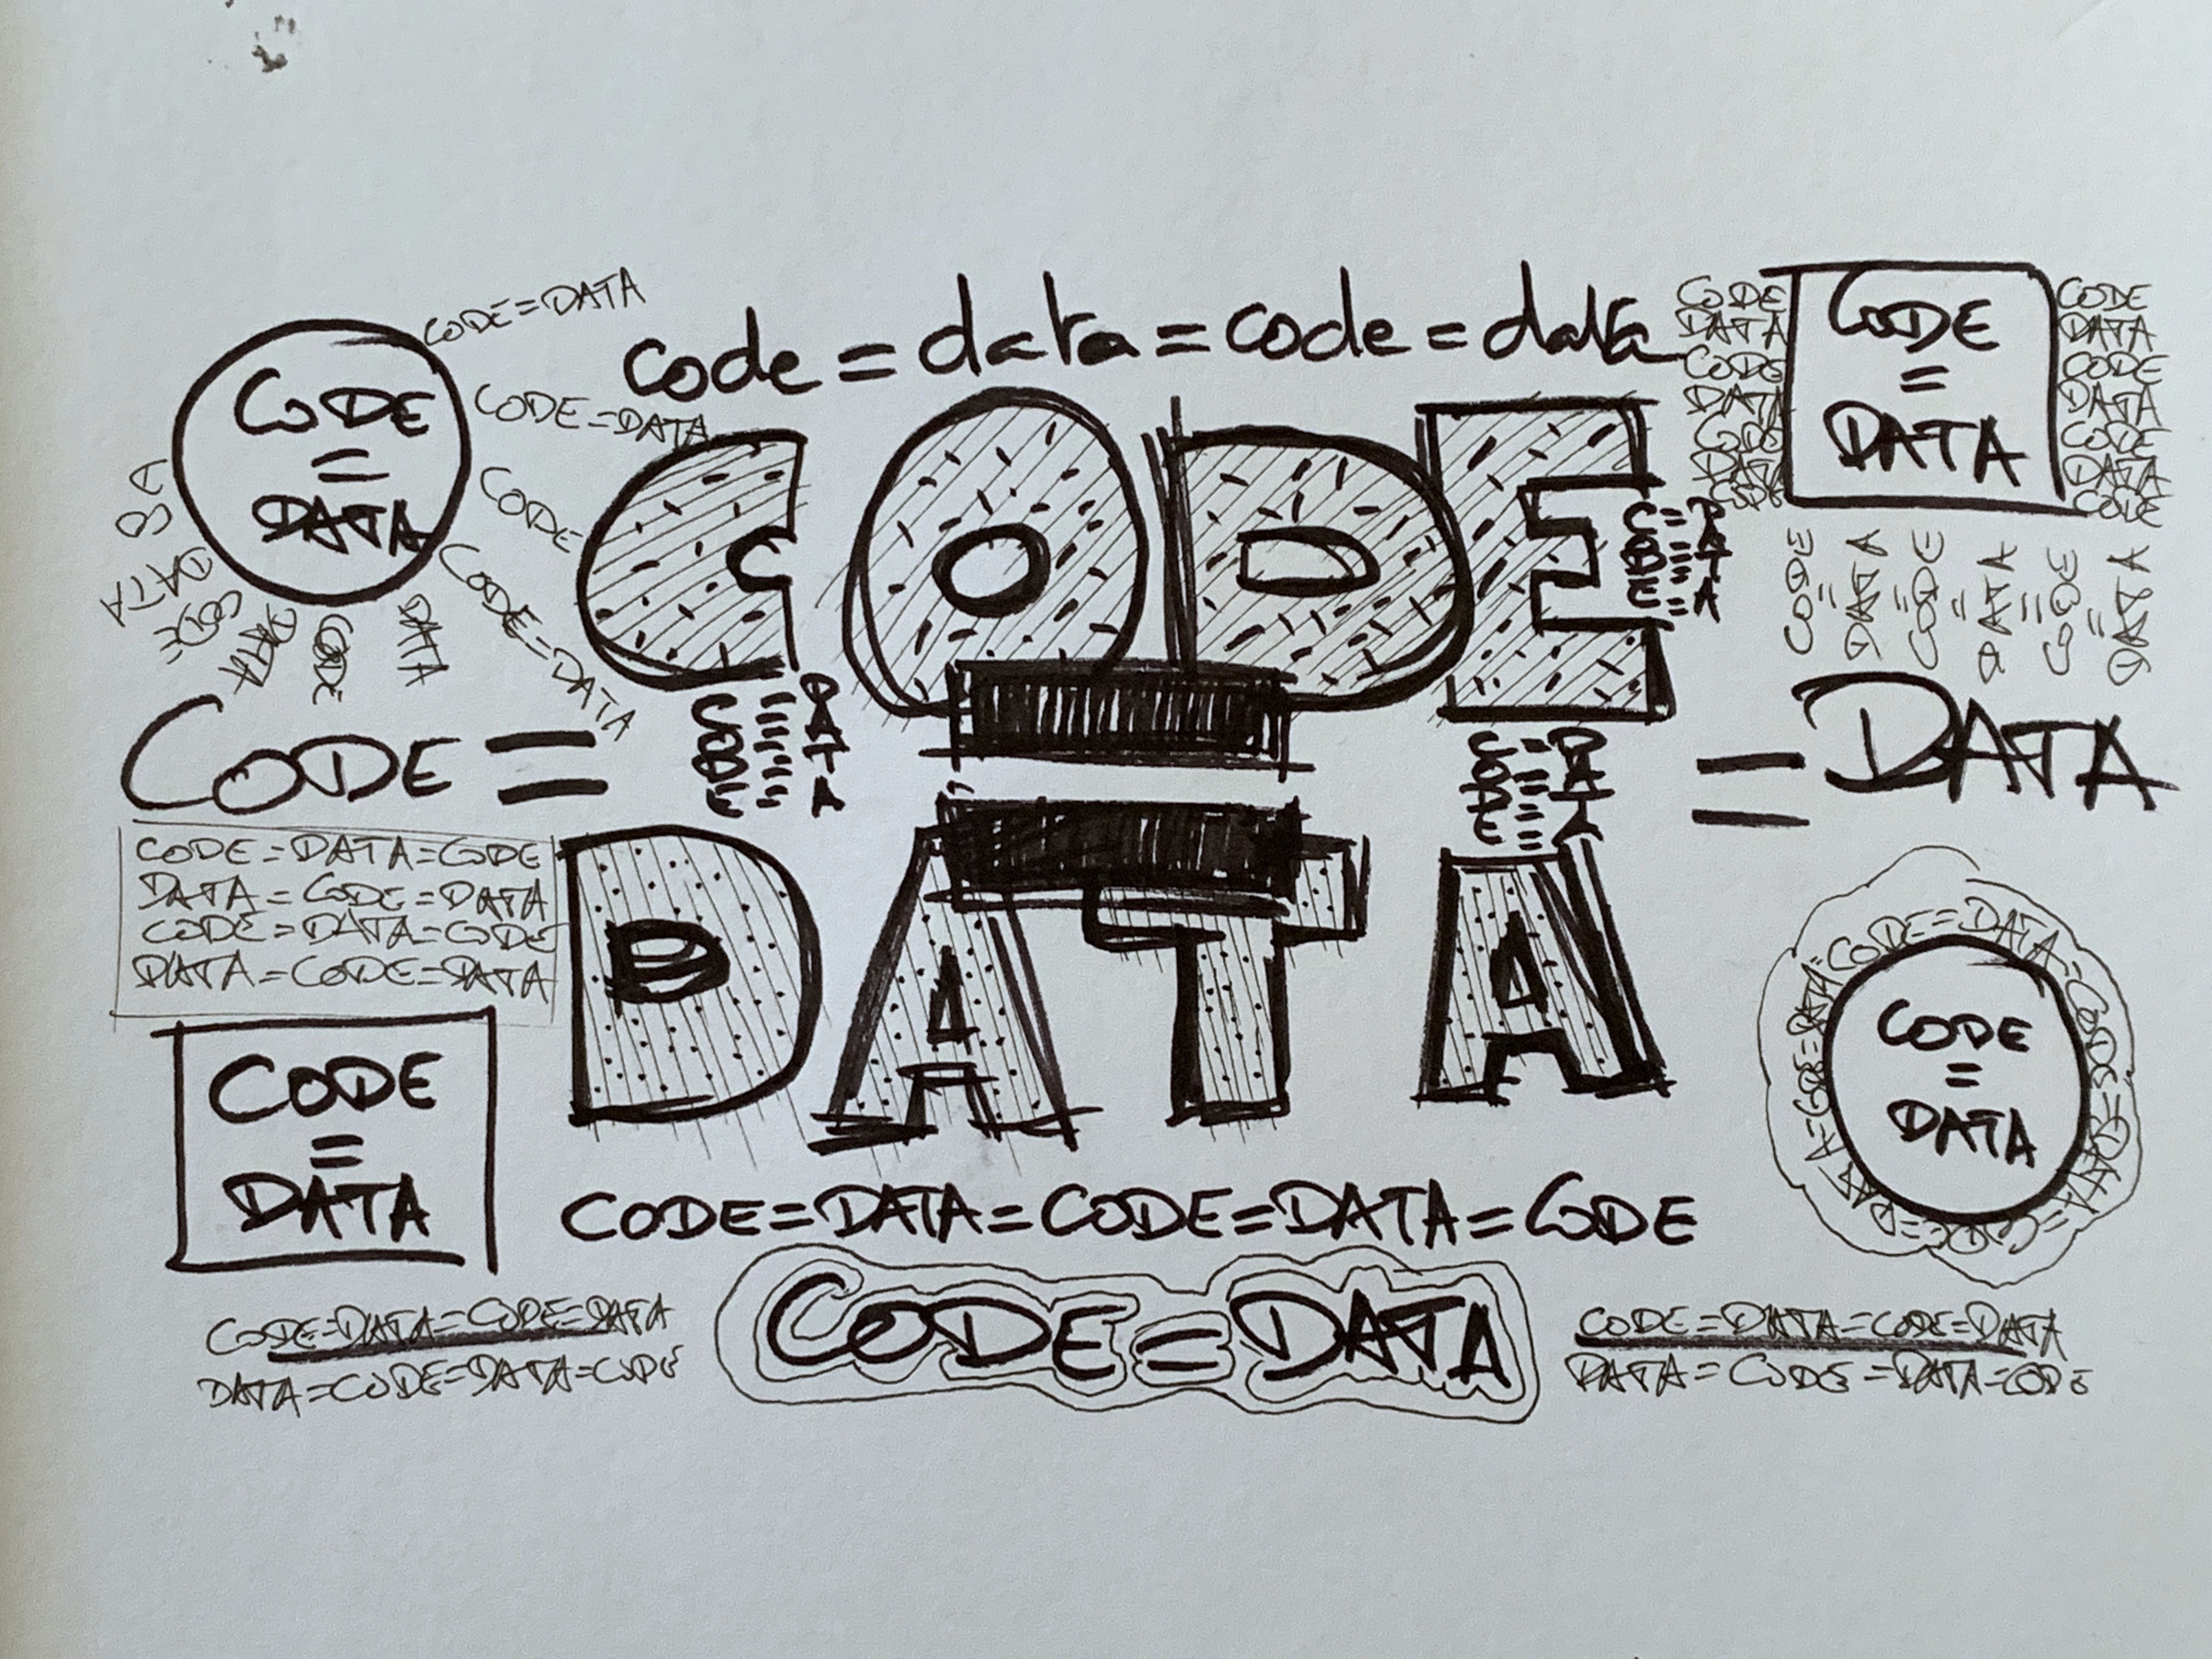 CODE=DATA
code = data = code = data
CODE
=
DATA
CODE=DATA
CODE
CODE=DATA
DATA
CODE
DATA
CODE=
DATA
CODE
=
DATA
CODE
DATA
CODE
DATA
CODE
DATA
CODE
CODE
DATA
CODE
DATA
CODE
DATA
CODE
CODE = DATA = CODE = DATA = CODE = DATA
CODE
C = D
O = A
D = T
E = A
CODE =
C = D
O = A
D = T
E = A
=
C = D
O = A
D = T
E = A
= DATA
DATA
CODE=DATA=CODE
DATA=CODE=DATA
CODE=DATA=CODE
DATA=CODE=DATA
CODE
=
DATA
CODE=DATA=CODE=DATA=CODE=DATA
CODE
=
DATA
CODE=DATA=CODE=DATA=CODE
CODE=DATA
CODE=DATA=CODE=DATA
DATA=CODE=DATA=CODE
CODE=DATA=CODE=DATA
DATA=CODE=DATA=CODE